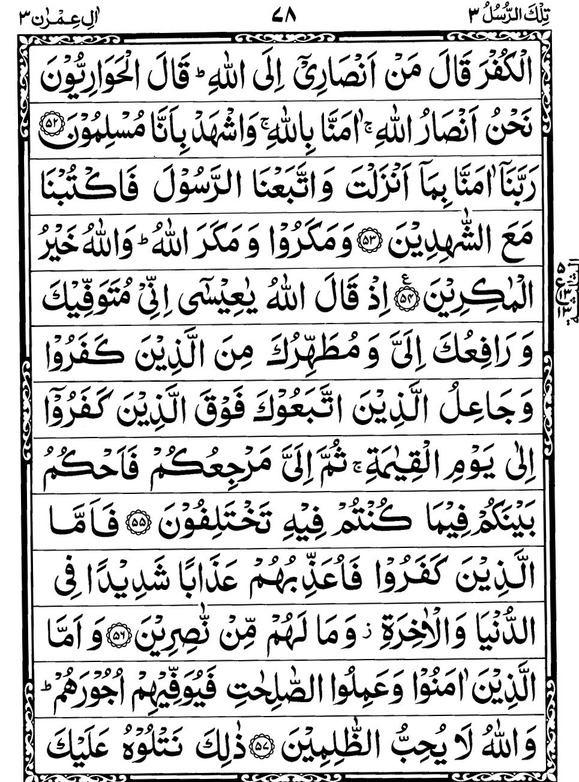 تِلْكَ الرُّسُلُ ٣ ٧٨ اٰلِ عِمْرٰن ٣
الْكُفْرَ قَالَ مَنْ اَنْصَارِیْۤ اِلَى اللّٰهِ ؕ قَالَ الْحَوَارِیُّوْنَ
نَحْنُ اَنْصَارُ اللّٰهِ ۚ اٰمَنَّا بِاللّٰهِ ۚ وَاشْهَدْ بِاَنَّا مُسْلِمُوْنَ ۝۵۲
رَبَّنَاۤ اٰمَنَّا بِمَاۤ اَنْزَلْتَ وَاتَّبَعْنَا الرَّسُوْلَ فَاكْتُبْنَا
مَعَ الشّٰهِدِیْنَ ۝۵۳ وَمَكَرُوْا وَمَكَرَ اللّٰهُ ؕ وَاللّٰهُ خَیْرُ
الْمٰكِرِیْنَ ۝۵۴ ع اِذْ قَالَ اللّٰهُ یٰعِیْسٰۤى اِنِّیْ مُتَوَفِّیْكَ
وَرَافِعُكَ اِلَیَّ وَمُطَهِّرُكَ مِنَ الَّذِیْنَ كَفَرُوْا
وَجَاعِلُ الَّذِیْنَ اتَّبَعُوْكَ فَوْقَ الَّذِیْنَ كَفَرُوْۤا
اِلٰى یَوْمِ الْقِیٰمَةِ ۚ ثُمَّ اِلَیَّ مَرْجِعُكُمْ فَاَحْكُمُ
بَیْنَكُمْ فِیْمَا كُنْتُمْ فِیْهِ تَخْتَلِفُوْنَ ۝۵۵ فَاَمَّا
الَّذِیْنَ كَفَرُوْا فَاُعَذِّبُهُمْ عَذَابًا شَدِیْدًا فِی
الدُّنْیَا وَالْاٰخِرَةِ ؗ وَمَا لَهُمْ مِّنْ نّٰصِرِیْنَ ۝۵۶ وَاَمَّا
الَّذِیْنَ اٰمَنُوْا وَعَمِلُوا الصّٰلِحٰتِ فَیُوَفِّیْهِمْ اُجُوْرَهُمْ ؕ
وَاللّٰهُ لَا یُحِبُّ الظّٰلِمِیْنَ ۝۵۷ ذٰلِكَ نَتْلُوْهُ عَلَیْكَ